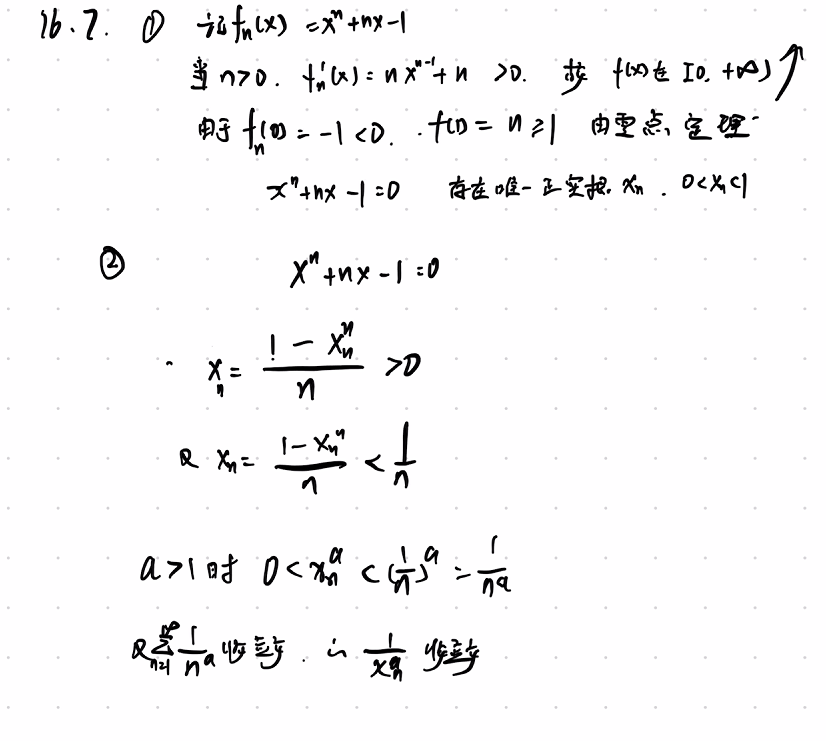 16.7. ① 记 fₙ(x) = xⁿ+nx-1
当 n>0. fₙ'(x) = nxⁿ⁻¹+n >0. 故 f(x)在 [0, +∞) ↗
由于 fₙ(0) = -1 <0. f(1) = n ≥1 由零点定理
xⁿ+nx-1=0 存在唯一正实根 xₙ. 0<xₙ<1
② xⁿ+nx-1=0
xₙ = (1-xₙⁿ)/n >0
又 xₙ = (1-xₙⁿ)/n < 1/n
a>1时 0<xₙᵃ<(1/n)ᵃ = 1/nᵃ
又 ∑_{n=1}^{∞} 1/nᵃ 收敛. ∴ 1/xₙᵃ 收敛